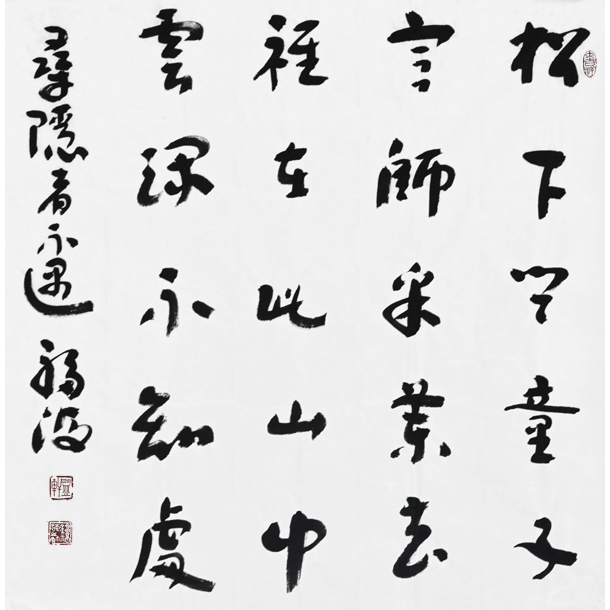 松下問童子
言師采藥去
祇在此山中
雲深不知處
尋隱者不遇